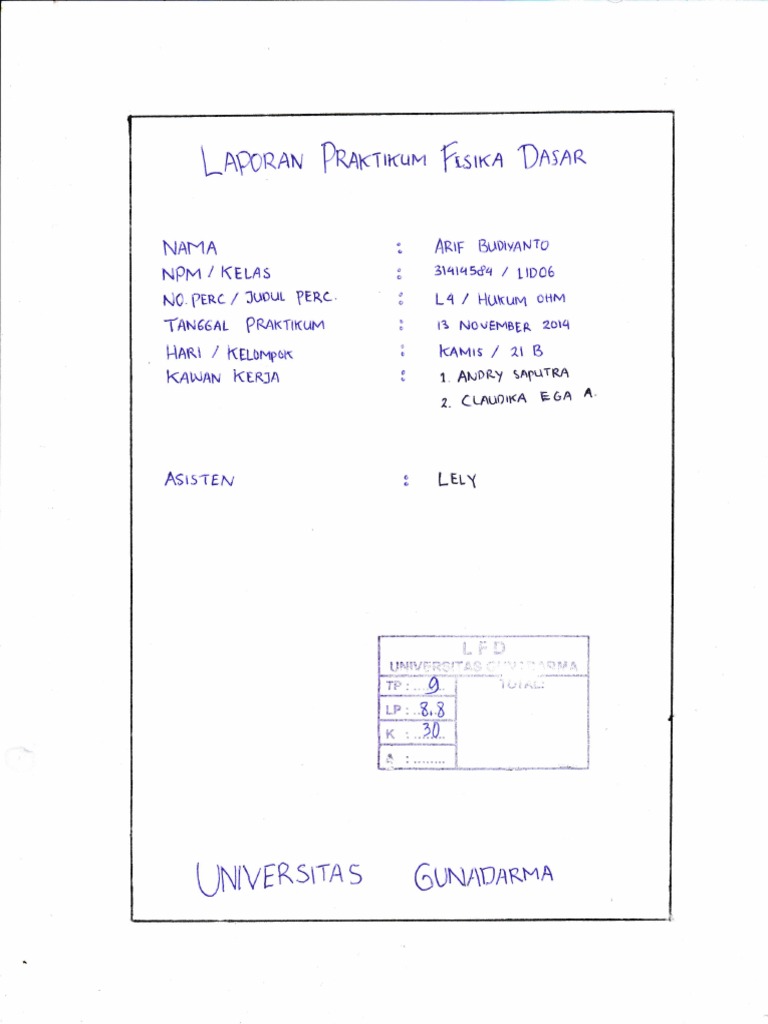 LAPORAN PRAKTIKUM FISIKA DASAR
NAMA : ARIF BUDIYANTO
NPM / KELAS : 31414584 / 1ID06
NO. PERC / JUDUL PERC. : L4 / HUKUM OHM
TANGGAL PRAKTIKUM : 13 NOVEMBER 2014
HARI / KELOMPOK : KAMIS / 21 B
KAWAN KERJA : 1. ANDRY SAPUTRA
2. CLAUDIKA EGA A.
ASISTEN : LELY
LFD
UNIVERSITAS GUNADARMA
TP : ... 9 TOTAL:
LP : ..8.8
K : ..30..
: ........
UNIVERSITAS GUNADARMA